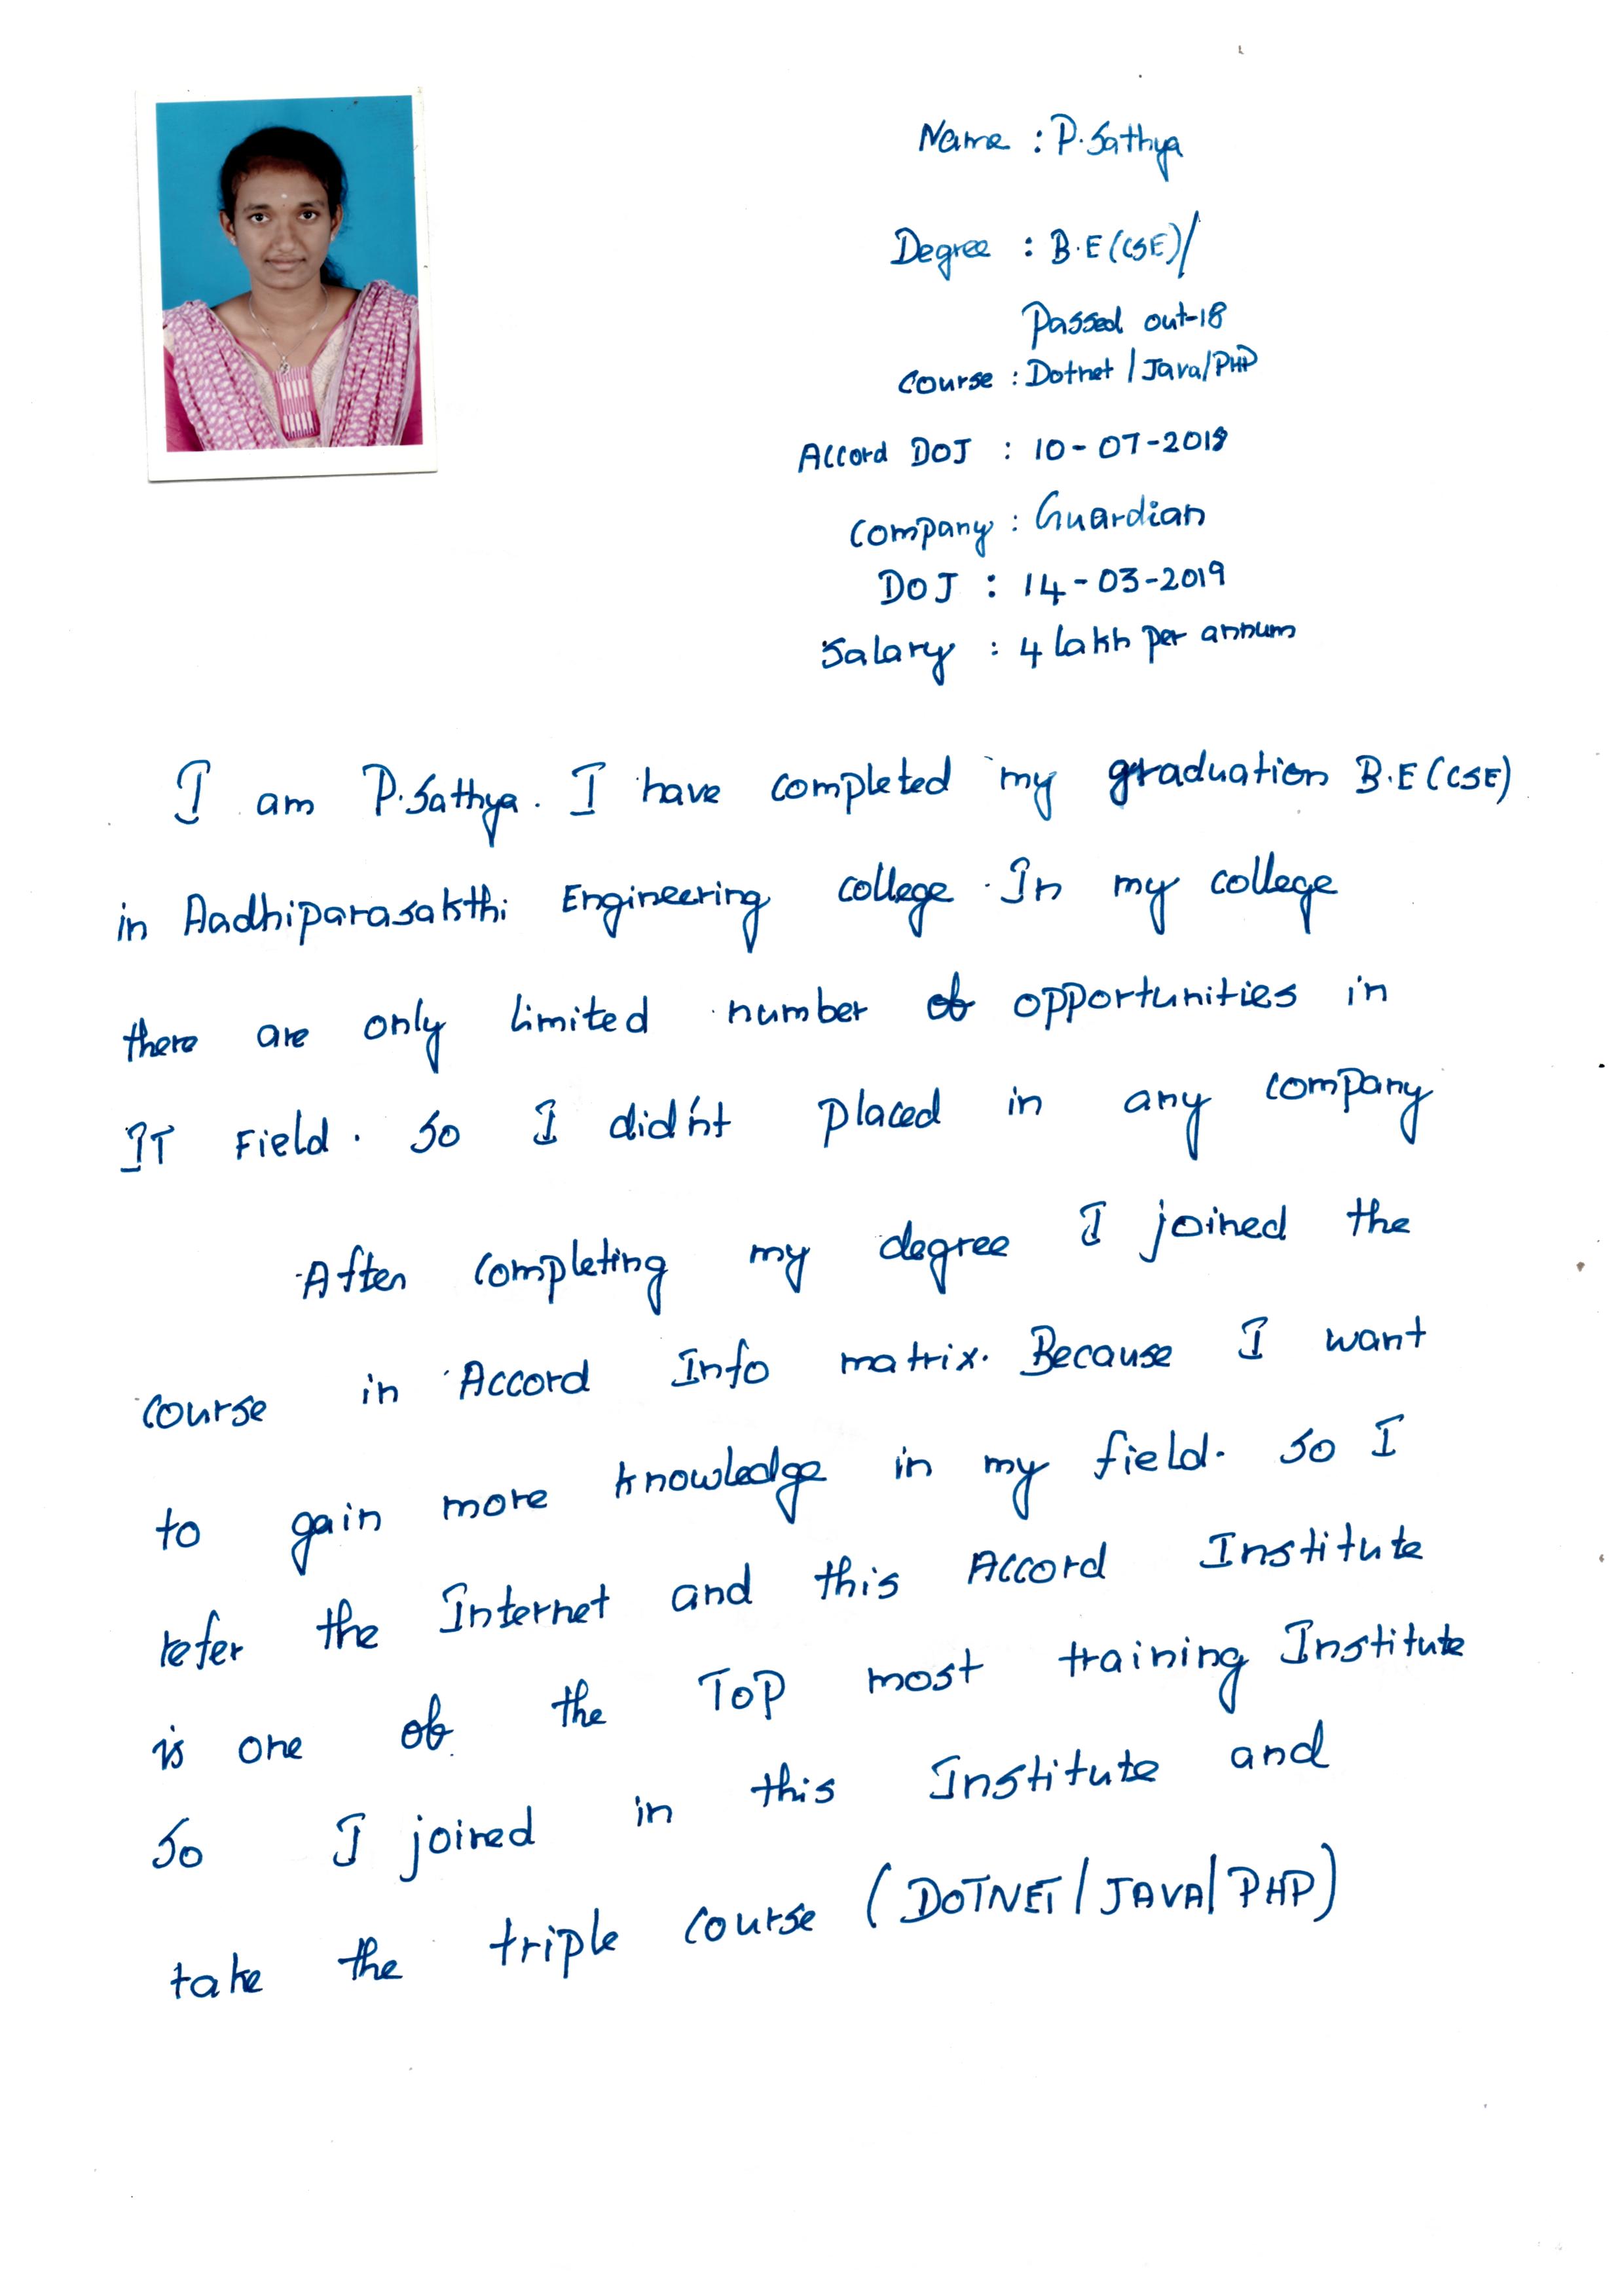 Name : P.Sathya
Degree : B.E(CSE)/
Passed out-18
Course : Dotnet / Java/PHP
Accord DOJ : 10-07-2018
Company : Guardian
DOJ : 14-03-2019
Salary : 4 lakh per annum
I am P.Sathya. I have completed my graduation B.E(CSE)
in Aadhiparasakthi Engineering college. In my college
there are only limited number of opportunities in
IT Field. So I did'nt placed in any company
After completing my degree I joined the
course in Accord Info matrix. Because I want
to gain more knowledge in my field. So I
refer the Internet and this Accord Institute
is one of the Top most training Institute
So I joined in this Institute and
take the triple course (DOTNET/JAVA/PHP)